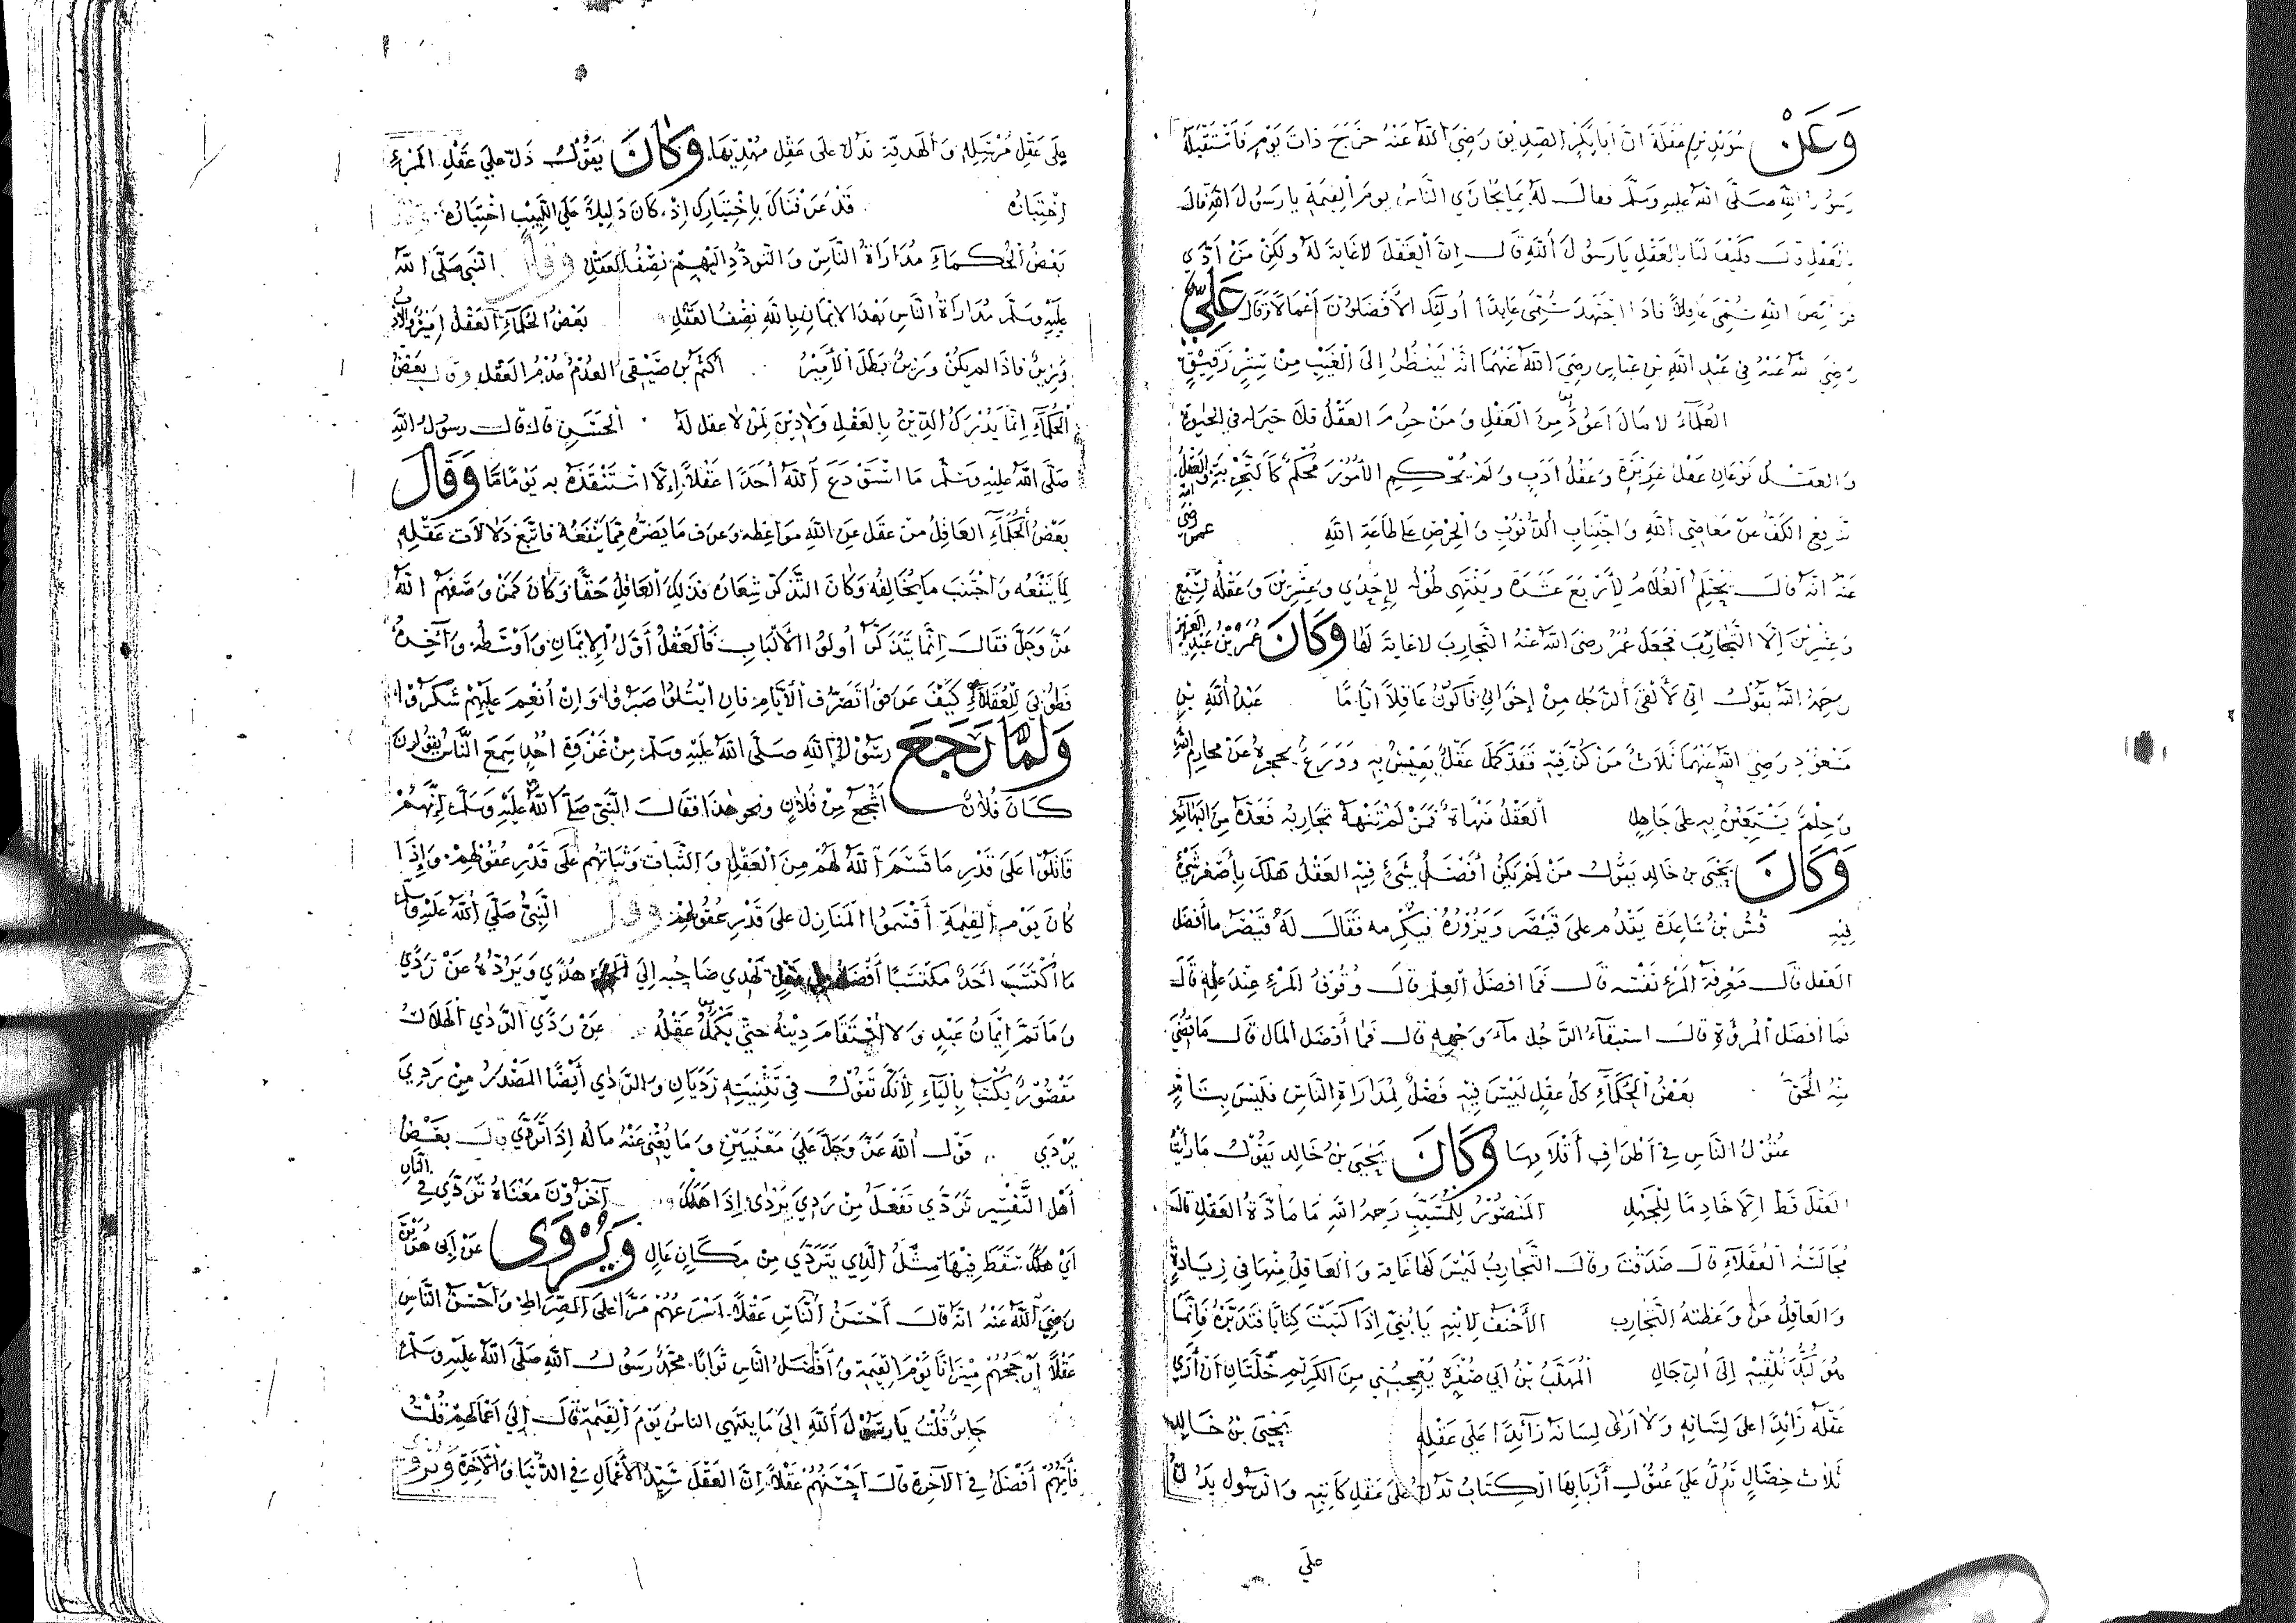 وَعَنْ سُوَيْدِ بْنِ غَفَلَةَ اَنَّ اَبَا بَكْرٍ الصِّدِّيْقَ رَضِيَ اللّٰهُ عَنْهُ خَرَجَ ذَاتَ يَوْمٍ فَاَسْتَقْبَلَهُ
رَسُولُ اللّٰهِ صَلَّى اللّٰه عَلَيْهِ وَسَلَّمَ فَقَالَ لَهُ بِمَا يُجَازَي النَّاسُ يَومَ الْقِيٰمَةِ يَا رَسُولَ اللّٰهِ قَالَ
بِالْعَقْلِ قَالَ فَكَيْفَ لَنَا بِالْعَقْلِ يَا رَسُوْلَ اَللّٰهِ قَالَ اِنَّ اَلْعَقْلَ لَا غَايَةَ لَهُ وَلَكِنْ مَنْ اَدَّي
فَرَائِضَ اللّٰهِ سُمِّيَ عَاقِلًا فَاِذَا اجْتَهَدَ سُمِّيَ عَابِدًا اُولٰئِكَ الْاَفْضَلُوْنَ اَعْمَالًا وَقَالَ عَلِيٌّ
رَضِيَ اللّٰه عَنْهُ فِي عَبْدِ اللّٰهِ بْنِ عَبَّاسٍ رَضِيَ اللّٰهُ عَنْهُمَا اَنَّهُ يَنْظُرُ اِلَى الْغَيْبِ مِنْ سِتْرٍ رَقِيْقٍ
الْعُلَمَاءُ لَا مَالَ اَعْوَدُ مِنَ الْعَقْلِ وَمَنْ حُرِمَ الْعَقْلَ فَلَا خَيْرَ لَهُ فِي الْحَيٰوةِ
وَالعَقْلُ نَوْعَانِ عَقْلُ غَرِيْزَةٍ وَعَقْلُ اَدَبٍ وَلَمْ يُحْكِمِ الْاُمُوْرَ مُحْكِمٌ كَالتَّجْرِبَةِ وَالعَقْلُ
الكَفُّ عَنْ مَعَاصِي اللّٰهِ وَاجْتِنَابِ الذُّنُوْبِ وَالْحِرْصُ عَلٰى طَاعَةِ اللّٰهِ عمر رضى الله
عَنْهُ اَنَّهُ قَالَ يَحْتَلِمُ الْغُلَامُ لِاَرْبَعَ عَشَرَةَ وَيَنْتَهِي طُوْلُهُ لِاِحْدٰي وَعِشْرِيْنَ وَعَقْلُهُ لِسَبْعٍ
وَعِشْرِيْنَ اِلَّا التَّجَارِبَ فَجَعَلَ عُمَرُ رَضِيَ اللّٰهُ عَنْهُ التَّجَارِبَ لَا غَايَةَ لَهَا وَكَانَ عُمَرُ بْنُ عَبْدِ الْعَزِيْزِ
رَحِمَهُ اللّٰهُ يَقُوْلُ اِنِّي لَاَلْقَى الرَّجُلَ مِنْ اِخْوَانِي فَاَكُوْنُ عَاقِلًا اَيَّامًا عَبْدُ اللّٰهِ بْنِ
مَسْعُوْدٍ رَضِيَ اللّٰهُ عَنْهُمَا ثَلَاثٌ مَنْ كُنَّ فِيْهِ فَقَدْ كَمُلَ عَقْلٌ يَعِيْشُ بِهِ وَوَرَعٌ يَحْجِزُهُ عَنْ مَحَارِمِ اللّٰهِ
وَحِلْمٌ يَسْتَعِيْنُ بِهِ عَلٰى جَاهِلٍ اَلْعَقْلُ مَنْهَاةٌ فَمَنْ لَمْ تَنْهَهُ تَجَارِبُهُ فَعَدِّهِ مِنَ الْبَهَائِمِ
وَكَانَ يَحْيَى بن خَالِدٍ يَقُوْلُ مَنْ لَمْ يَكُنْ اَفْضَلُ شَيْءٍ فِيْهِ الْعَقْلُ هَلَكَ بِاَصْغَرِ شَيْءٍ
فِيْهِ قُسُّ بْنُ سَاعِدَةَ يَقْدُمُ عَلٰى قَيْصَرَ وَيَزُوْرُهُ فَيُكْرِمُهُ فَقَالَ لَهُ قَيْصَرُ مَا اَفْضَلُ
العَقْلِ قَالَ مَعْرِفَةُ الْمَرْءِ نَفْسَهُ قَالَ فَمَا اَفْضَلُ الْعِلْمِ قَالَ وُقُوْفُ الْمَرْءِ عِنْدَ عِلْمِهِ قَالَ
فَمَا اَفْضَلُ الْمُرُوَّةِ قَالَ اسْتِبْقَاءُ الرَّجُلِ مَاءَ وَجْهِهِ قَالَ فَمَا اَفْضَلُ الْمَالِ قَالَ مَا قُضِيَ
مِنْهُ الْحَقُّ بَعْضُ الْحُكَمَاءِ كُلُّ عَقْلٍ لَيْسَ فِيْهِ فَضْلٌ لِمُدَارَاةِ النَّاسِ فَلَيْسَ بِتَامٍّ
عُقُوْلُ النَّاسِ فِي اَطْرَافِ اَقْلَامِهَا وَكَانَ يَحْيَى بْنُ خَالِدٍ يَقُوْلُ مَا رَأَيْنَا
العَقْلَ قَطُّ اِلَّا خَادِمًا لِلْجَهْلِ الْمَنْصُوْرُ لِلْمُسَيَّبِ رَحِمَهُ اللّٰه مَا مَادَّةُ الْعَقْلِ قَالَ
مُجَالَسَةُ الْعُقَلَاءِ قَالَ صَدَقْتَ وَقَالَ التَّجَارِبُ لَيْسَ لَهَا غَايَةٌ وَالْعَاقِلُ مِنْهَا فِي زِيَادَةٍ
وَالْعَاقِلُ مَنْ وَعَظَتْهُ التَّجَارِبُ الْاَحْنَفُ لِابْنِهِ يَا بُنَيَّ اِذَا كَتَبْتَ كِتَابًا فَتَدَبَّرْهُ فَاِنَّمَا
هُوَ لُبُّكَ تُلْقِيْهِ اِلَى الرِّجَالِ الْمُهَلَّبُ بْنُ اَبِي صُفْرَةَ يُعْجِبُنِي مِنَ الْكَرِيْمِ خَلَّتَانِ اَنْ اَرٰي
عَقْلَهُ زَائِدًا عَلٰى لِسَانِهِ وَلَا اَرٰى لِسَانَهُ زَائِدًا عَلٰى عَقْلِهِ يَحْيَى بْنُ خَالِدٍ
ثَلَاثُ خِصَالٍ تَدُلُّ عَلٰى عُقُوْلِ اَرْبَابِهَا الْكِتَابُ تَدُلُّ عَلٰى عَقْلِ كَاتِبِهِ وَالرَّسُوْلُ يَدُلُّ
علي
عَلٰى عَقْلِ مُرْسِلِهِ وَالْهَدِيَّةُ تَدُلُّ عَلٰى عَقْلِ مُهْدِيْهَا وَكَانَ يَقُوْلُ دَلَّ عَلٰى عَقْلِ الْمَرْءِ
اِخْتِيَارُهُ قَدْ عَرَفْنَاكَ بِاِخْتِيَارِكَ اِذْ كَانَ دَلِيْلًا عَلَى اللَّبِيْبِ اخْتِيَارُهُ
بَعْضُ الْحُكَمَاءِ مُدَارَاةُ النَّاسِ وَالتَّوَدُّدُ اِلَيْهِمْ نِصْفُ الْعَقْلِ وَقَالَ النَّبِي صَلَّى اللّٰهُ
عَلَيْهِ وَسَلَّمَ مُدَارَاةُ النَّاسِ بَعْدَ الْاِيْمَانِ بِاللّٰهِ نِصْفُ الْعَقْلِ بَعْضُ الْحُكَمَاءِ الْعَقْلُ اَمِيْرٌ وَالْاَدَبُ
وَزِيْرٌ فَاِذَا لَمْ يَكُنْ وَزِيْرٌ بَطَلَ الْاَمِيْرُ اَكْثَمُ بْنُ صَيْفِي الْعُدْمُ عُدْمُ الْعَقْلِ وَقَالَ بَعْضُ
الْحُكَمَاءِ اِنَّمَا يُدْرَكُ الدِّيْنُ بِالْعَقْلِ وَلَا دِيْنَ لِمَنْ لَا عَقْلَ لَهُ الْحَسَنِ قَالَ قَالَ رَسُوْلُ اللّٰهِ
صَلَّى اللّٰهُ عَلَيْهِ وَسَلَّمَ مَا اسْتَوْدَعَ اللّٰهُ اَحَدًا عَقْلًا اِلَّا اسْتَنْقَذَهُ بِهِ يَوْمًا مَّا وَقَالَ
بَعْضُ الْحُكَمَاءِ الْعَاقِلُ مَنْ عَقَلَ عَنِ اللّٰهِ مَوَاعِظَهُ وَعَرَفَ مَا يَضُرُّهُ مِمَّا يَنْفَعُهُ فَاتَّبَعَ دَلَالَاتِ عَقْلِهِ
لِمَا يَنْفَعُهُ وَاجْتَنَبَ مَا يُخَالِفُهُ وَكَانَ التَّذَكُّرُ شِعَارَهُ فَذٰلِكَ الْعَاقِلُ حَقًّا وَكَانَ كَمَنْ وَصَفَهُمُ اللّٰهُ
عَزَّ وَجَلَّ فَقَالَ اِنَّمَا يَتَذَكَّرُ اُولُوا الْاَلْبَابِ فَالْعَقْلُ اَوَّلُ الْاِيْمَانِ وَاَوْسَطُهُ وَآخِرُهُ
فَطُوْبٰي لِلْعُقَلَاءِ كَيْفَ عَرَفُوْا تَصَرُّفَ الْاَيَّامِ فَاِنِ ابْتُلُوْا صَبَرُوْا وَاِنْ اُنْعِمَ عَلَيْهِمْ شَكَرُوْا
وَلَمَّا رَجَعَ رَسُوْلُ اللّٰهِ صَلَّى اللّٰهُ عَلَيْهِ وَسَلَّمَ مِنْ غَزْوَةِ اُحُدٍ سَمِعَ النَّاسَ يَقُوْلُوْنَ
كَانَ فُلَانٌ اَشْجَعَ مِنْ فُلَانٍ وَنَحْوَ هٰذَا فَقَالَ النَّبِيُّ صَلَّى اللّٰهُ عَلَيْهِ وَسَلَّمَ اِنَّهُمْ
قَاتَلُوْا عَلٰى قَدْرِ مَا قَسَمَ اللّٰهُ لَهُمْ مِنَ الْعَقْلِ وَالثَّبَاتِ وَثَبَاتُهُمْ عَلٰى قَدْرِ عُقُوْلِهِمْ وَاِذَا
كَانَ يَوْمُ الْقِيٰمَةِ اقْتَسَمُوا الْمَنَازِلَ عَلٰى قَدْرِ عُقُوْلِهِمْ وَقَالَ النَّبِيُّ صَلَّى اللّٰهُ عَلَيْهِ وَسَلَّمَ
مَا اكْتَسَبَ اَحَدٌ مُكْتَسَبًا اَفْضَلَ عَقْلٍ يَهْدِي صَاحِبَهُ اِلَي هُدًي وَيَرُدُّهُ عَنْ رَدًي
وَمَا تَمَّ اِيْمَانُ عَبْدٍ وَلَا اسْتَقَامَ دِيْنُهُ حَتّٰي يَكْمُلَ عَقْلُهُ عَنْ رَدًي الرَّدٰي الْهَلَاكُ
مَقْصُوْرٌ يُكْتَبُ بِالْيَاءِ لِاَنَّكَ تَقُوْلُ فِي تَثْنِيَتِهِ رَدَيَانِ وَالرَّدٰي اَيْضًا الْمَصْدَرُ مِنْ رَدِيَ
يَرْدَي قَوْلُ اللّٰه عَزَّ وَجَلَّ عَلٰي مَعْنَيَيْنِ وَمَا يُغْنِي عَنْهُ مَالُهُ اِذَا تَرَدّٰي قَالَ بَعْضُ
اَهْلِ التَّفْسِيْرِ تَرَدّٰي تَفَعَّلَ مِنْ رَدِيَ يَرْدٰى اِذَا هَلَكَ آخَرُوْنَ مَعْنَاهُ تَرَدّٰي فِي النَّارِ
اَيْ هَلَكَ سَقَطَ فِيْهَا مِثْلُ الَّذِي يَتَرَدّٰي مِنْ مَكَانٍ عَالٍ وَيُرْوٰى عَنْ اَبِي هُرَيْرَةَ
رَضِيَ اللّٰهُ عَنْهُ اَنَّهُ قَالَ اَحْسَنُ النَّاسِ عَقْلًا اَسْرَعُهُمْ مَرًّا عَلَى الصِّرَاطِ وَاَحْسَنُ النَّاسِ
عَقْلًا اَرْجَحُهُمْ مِيْزَانًا يَوْمَ الْقِيٰمَةِ وَاَفْضَلُ النَّاسِ ثَوَابًا مُحَمَّدٌ رَسُوْلُ اللّٰهِ صَلَّى اللّٰهُ عَلَيْهِ وَسَلَّمَ
جَابِرٌ قُلْتُ يَا رَسُوْلَ اللّٰهِ اِلٰى مَا يَنْتَهِي النَّاسُ يَوْمَ الْقِيٰمَةِ قَالَ اِلٰى اَعْمَالِهِمْ قُلْتُ
فَاَيُّهُمْ اَفْضَلُ فِي الْآخِرَةِ قَالَ اَحْسَنُهُمْ عَقْلًا اِنَّ الْعَقْلَ سَيِّدُ الْاَعْمَالِ فِي الدُّنْيَا وَالْآخِرَةِ وَيُرْوٰي